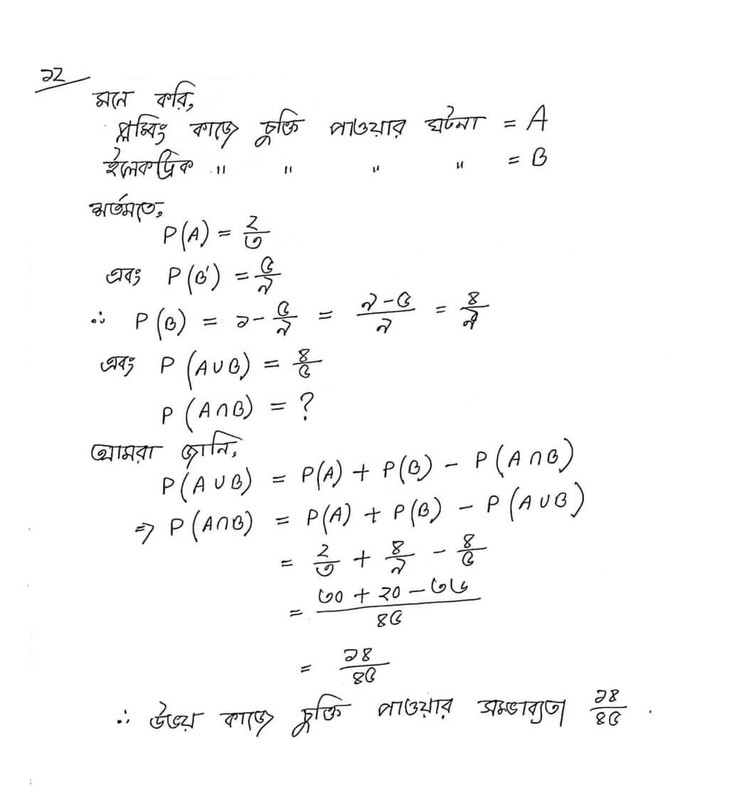 ১২
মনে করি,
প্লাম্বিং কাজে চুক্তি পাওয়ার ঘটনা = A
ইলেকট্রিক " " " " = B
শর্তমতে,
P(A) = ২/৩
এবং P(B') = ৫/৯
∴ P(B) = ১ - ৫/৯ = (৯-৫)/৯ = ৪/৯
এবং P(A∪B) = ৪/৫
P(A∩B) = ?
আমরা জানি,
P(A∪B) = P(A) + P(B) - P(A∩B)
⇒ P(A∩B) = P(A) + P(B) - P(A∪B)
= ২/৩ + ৪/৯ - ৪/৫
= (৩০ + ২০ - ৩৬)/৪৫
= ১৪/৪৫
∴ উভয় কাজে চুক্তি পাওয়ার সম্ভাব্যতা ১৪/৪৫ .